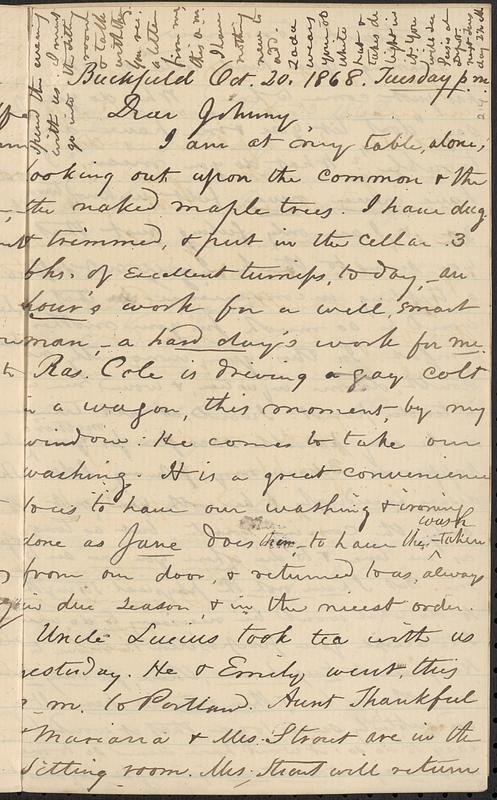 Buckfield Oct. 20. 1868. Tuesday p.m.
Dear Johnny
I am at my table, alone,
looking out upon the common & the
the naked maple trees. I have dug
& trimmed, & put in the cellar 3
bhs. of excellent turnips, to day, - an
hour's work for a well, smart
man, - a hard day's work for me.
Ras. Cole is driving a gay colt
in a wagon, this moment, by my
window: He comes to take our
washing. It is a great convenience
to us to have our washing & ironing
done as Jane does - to have the wash - taken
from our door, & returned to us, always
in due season, & in the nicest order.
Uncle Lucius took tea with us
yesterday. He & Emily went, this
p. m. to Portland. Aunt Thankful
Mariana & Mrs. Strout are in the
Sitting room. Mrs. Strout will return
spend the evening
with us. I must
go into the sitting
room
to talk
with them.
a letter
from me,
this a.m.
I have
nothing
new to
add.
Zada
wears
your old
white
hat &
takes de
light in
it. You
will see